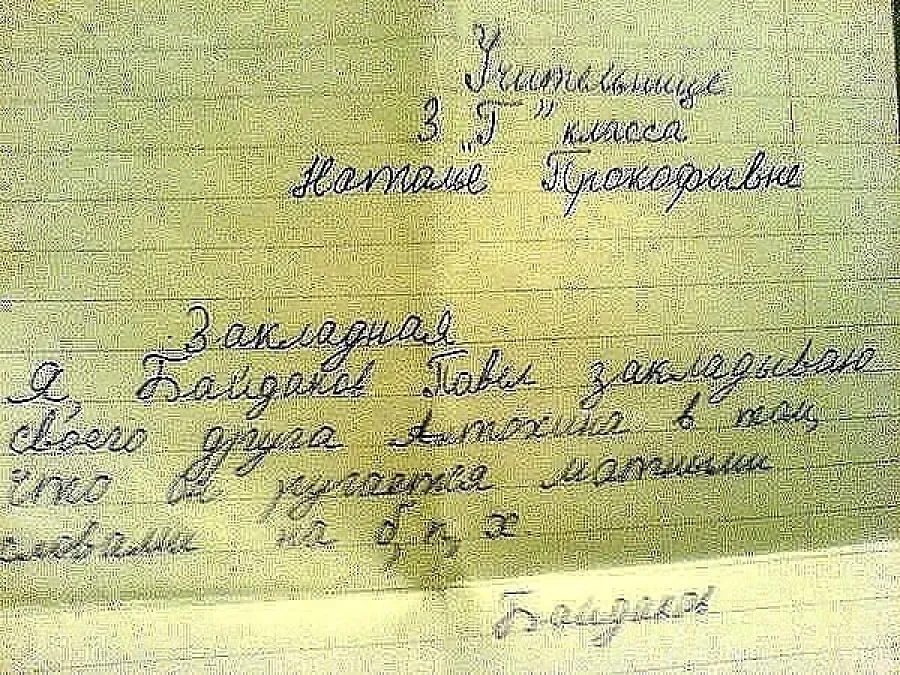 Учительнице
3 "Г" класса
Наталье Прокофьивне
Закладная
Я, Байдаков Павел закладываю
своего друга Атохина в том,
что он ругается матными
словами на б, п, х.
Байдаков